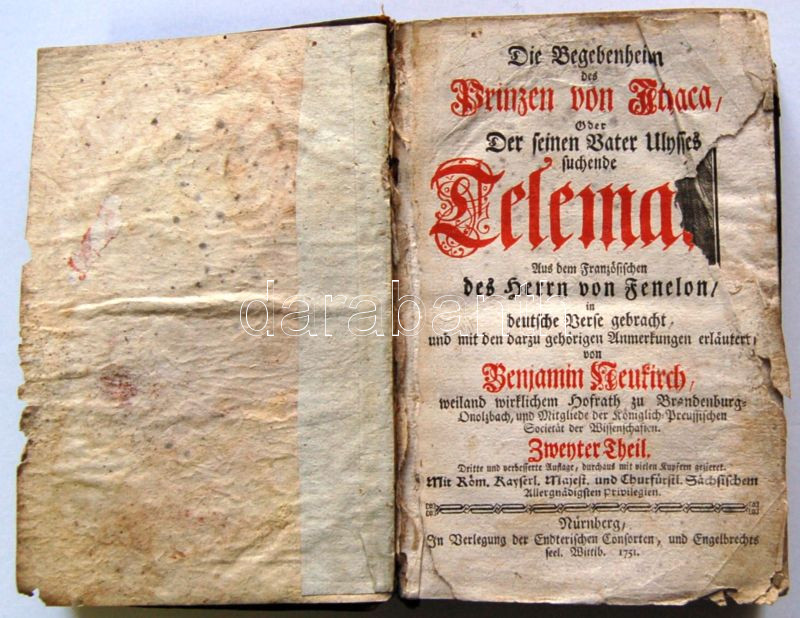 Die Begebenheiten
des
Prinzen von Ithaca/
Oder
Der seinen Vater Ulysses
suchende
Telema
Aus dem Französischen
des Herrn von Fenelon/
in
deutsche Verse gebracht,
und mit den darzu gehörigen Anmerkungen erläutert,
von
Benjamin Neukirch,
weiland wirklichem Hofrath zu Brandenburg-
Onolzbach, und Mitgliede der Königlich-Preussischen
Societät der Wissenschaften.
Zweyter Theil.
Dritte und verbesserte Auflage, durchaus mit vielen Kupfern gezieret.
Mit Röm. Kayserl. Majest. und Churfürstl. Sächsischem
Allergnädigsten Privilegien.
Nürnberg,
In Verlegung der Endterischen Consorten, und Engelbrechts
seel. Wittib. 1751.